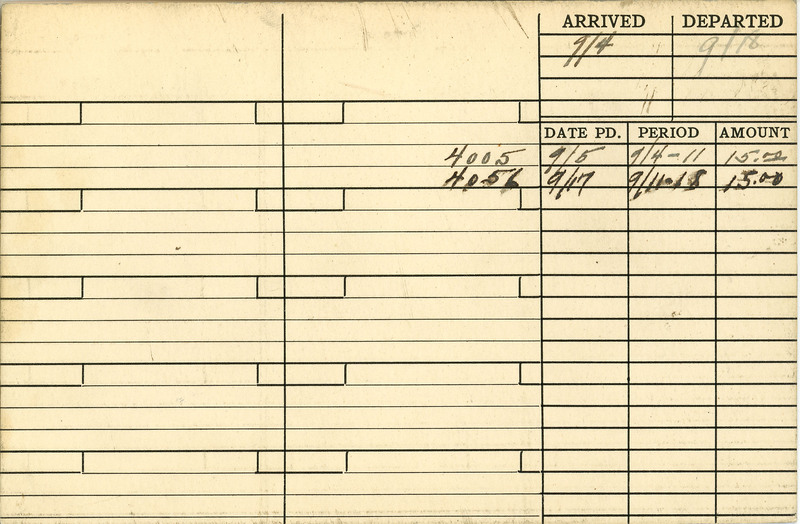 ARRIVED DEPARTED
9/4 9/18
DATE PD. PERIOD AMOUNT
4005 9/5 9/4-11 15.00
4056 9/17 9/11-18 15.00